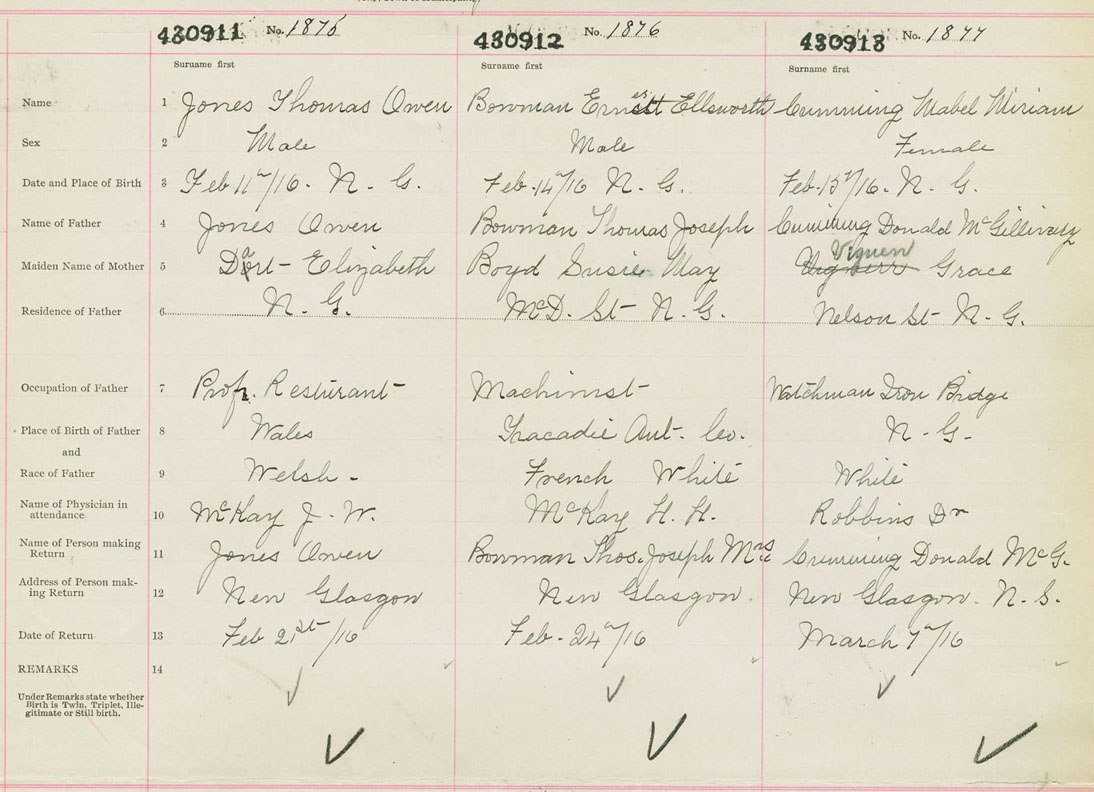 430911 No. 1875 430912 No. 1876 430913 No. 1877
Surname first Surname first Surname first
Name 1 Jones Thomas Owen Bowman Ernest Ellsworth Cumming Mabel Miriam
Sex 2 Male Male Female
Date and Place of Birth 3 Feb 11th/16. N. G. Feb. 14th/16 N. G. Feb. 15th/16. N. G.
Name of Father 4 Jones Owen Bowman Thomas Joseph Cumming Donald McGillivray
Maiden Name of Mother 5 Dart Elizabeth Boyd Susie May Viguerr Viguen Grace
Residence of Father 6 N. G. McD. St N. G. Nelson St N. G.
Occupation of Father 7 Propr. Resturant Machinist Watchman Iron Bridge
Place of Birth of Father 8 Wales Tracadie Ant. Co. N. G.
and
Race of Father 9 Welsh French White White
Name of Physician in
attendance 10 McKay J. W. McKay H. H. Robbins Dr
Name of Person making
Return 11 Jones Owen Bowman Thos. Joseph Mrs Cumming Donald McG.
Address of Person mak-
ing Return 12 New Glasgow New Glasgow. New Glasgow. N. S.
Date of Return 13 Feb 21st/16 Feb. 24th/16 March 7th/16
REMARKS 14
Under Remarks state whether
Birth is Twin, Triplet, Ille-
gitimate or Still birth.